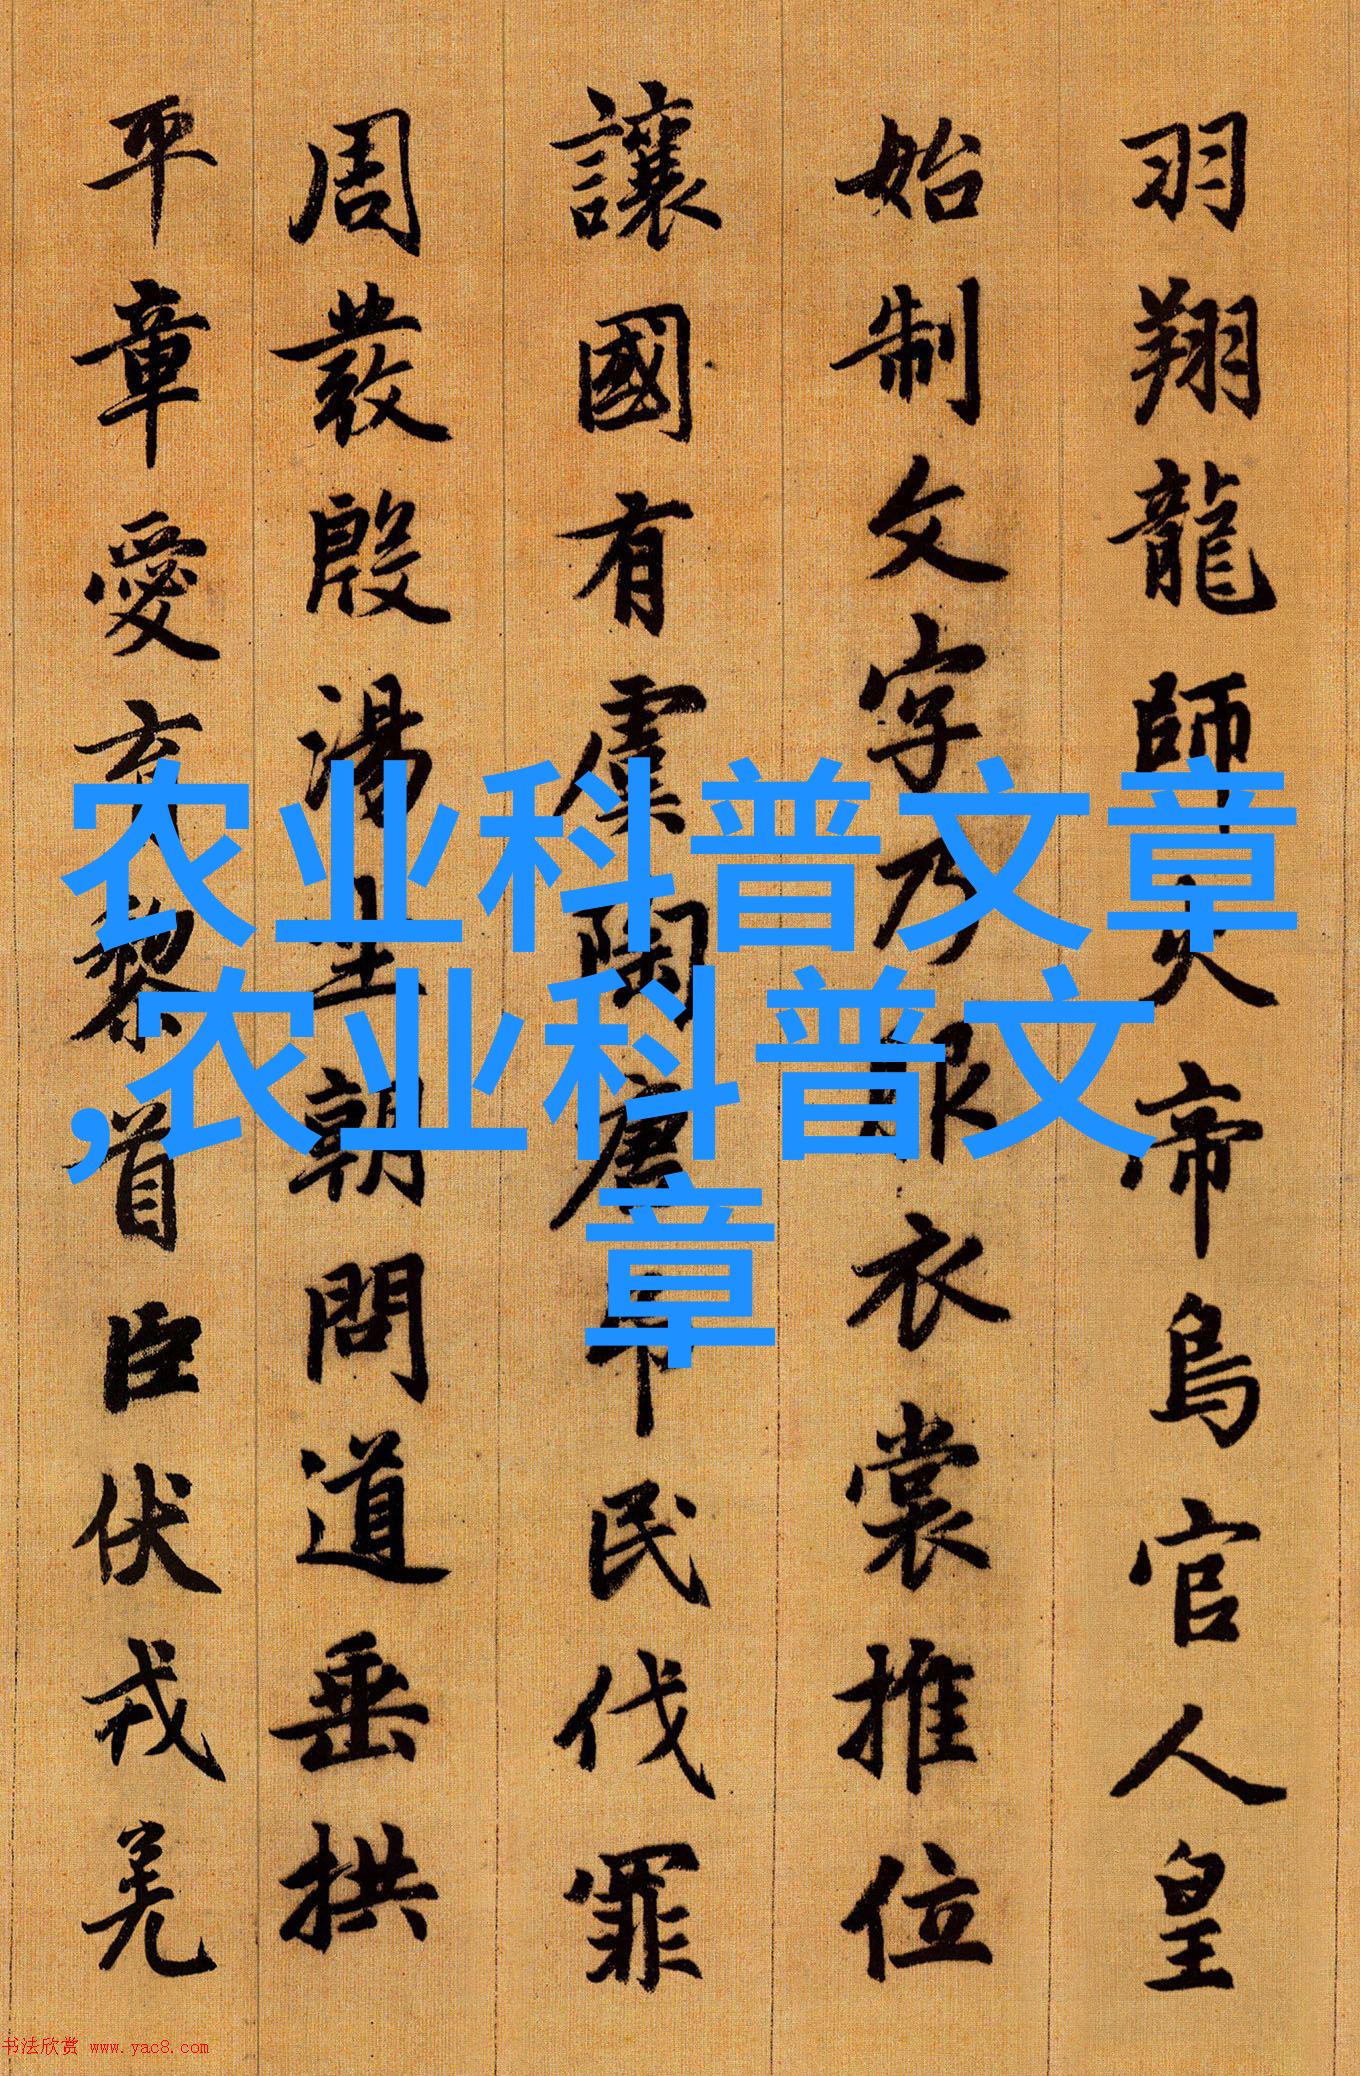 羽翔龍師火帝鳥官人皇
始制文字乃服衣裳推位
讓國有虞陶唐弔民伐罪
周發殷湯坐朝問道垂拱
平章愛育黎首臣伏戎羌
农业科普文章
,农业科普文
章
书法欣赏 www.yac8.com